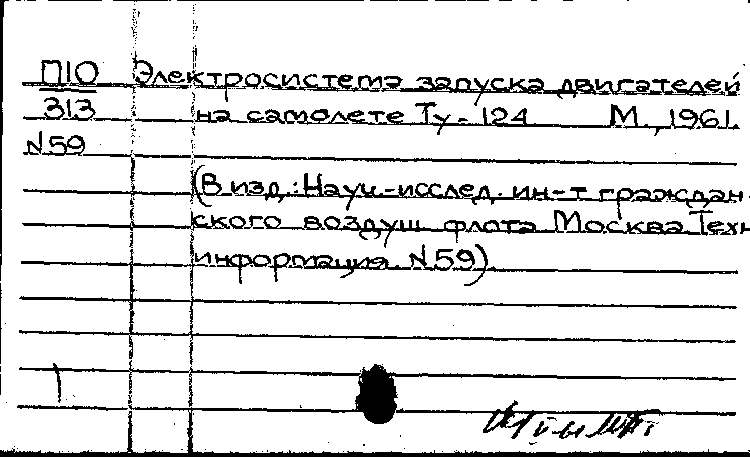 П10 Электросистема запуска двигателей
313 на самолете Ту-124 М., 1961.
N59
(В изд.: Науч.-исслед. ин-т граждан-
ского воздуш. флота Москва Техн
информация N59).